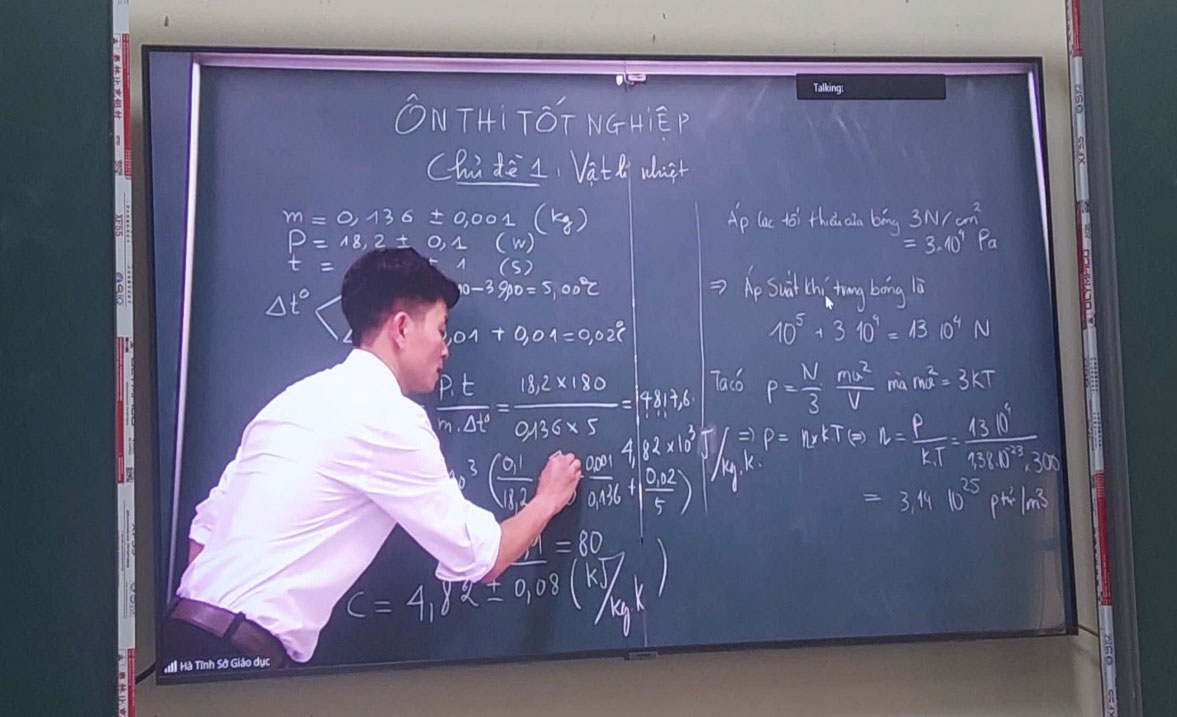 Talking:
ÔN THI TỐT NGHIỆP
Chủ đề 1: Vật lí nhiệt
m = 0,136 ± 0,001 (kg)
P = 18,2 ± 0,1 (W)
t = 1 (s)
Δt° 00-3,900=5,00°C
,01 + 0,01 = 0,02°C
P.t / m.Δt° = 18,2 x 180 / 0,136 x 5 = 4817,6.
4,82 x 10³ J/kg.k.
10³ (0,1 / 18,2 0,001 / 0,136 + 0,02 / 5)
= 80
C = 4,82 ± 0,08 (kJ/kg.k)
Áp lực tối thiểu của bóng 3N/cm²
= 3.10⁴ Pa
⇒ Áp suất khí trong bóng là
10⁵ + 3 10⁴ = 13 10⁴ N
Ta có P = N/3 mv²/V mà mv² = 3KT
⇒ P = n x KT ⇔ n = P/K.T = 13 10⁴ / 1,38.10⁻²³.300
= 3,14 10²⁵ ptử/m3
Hà Tĩnh Sở Giáo dục